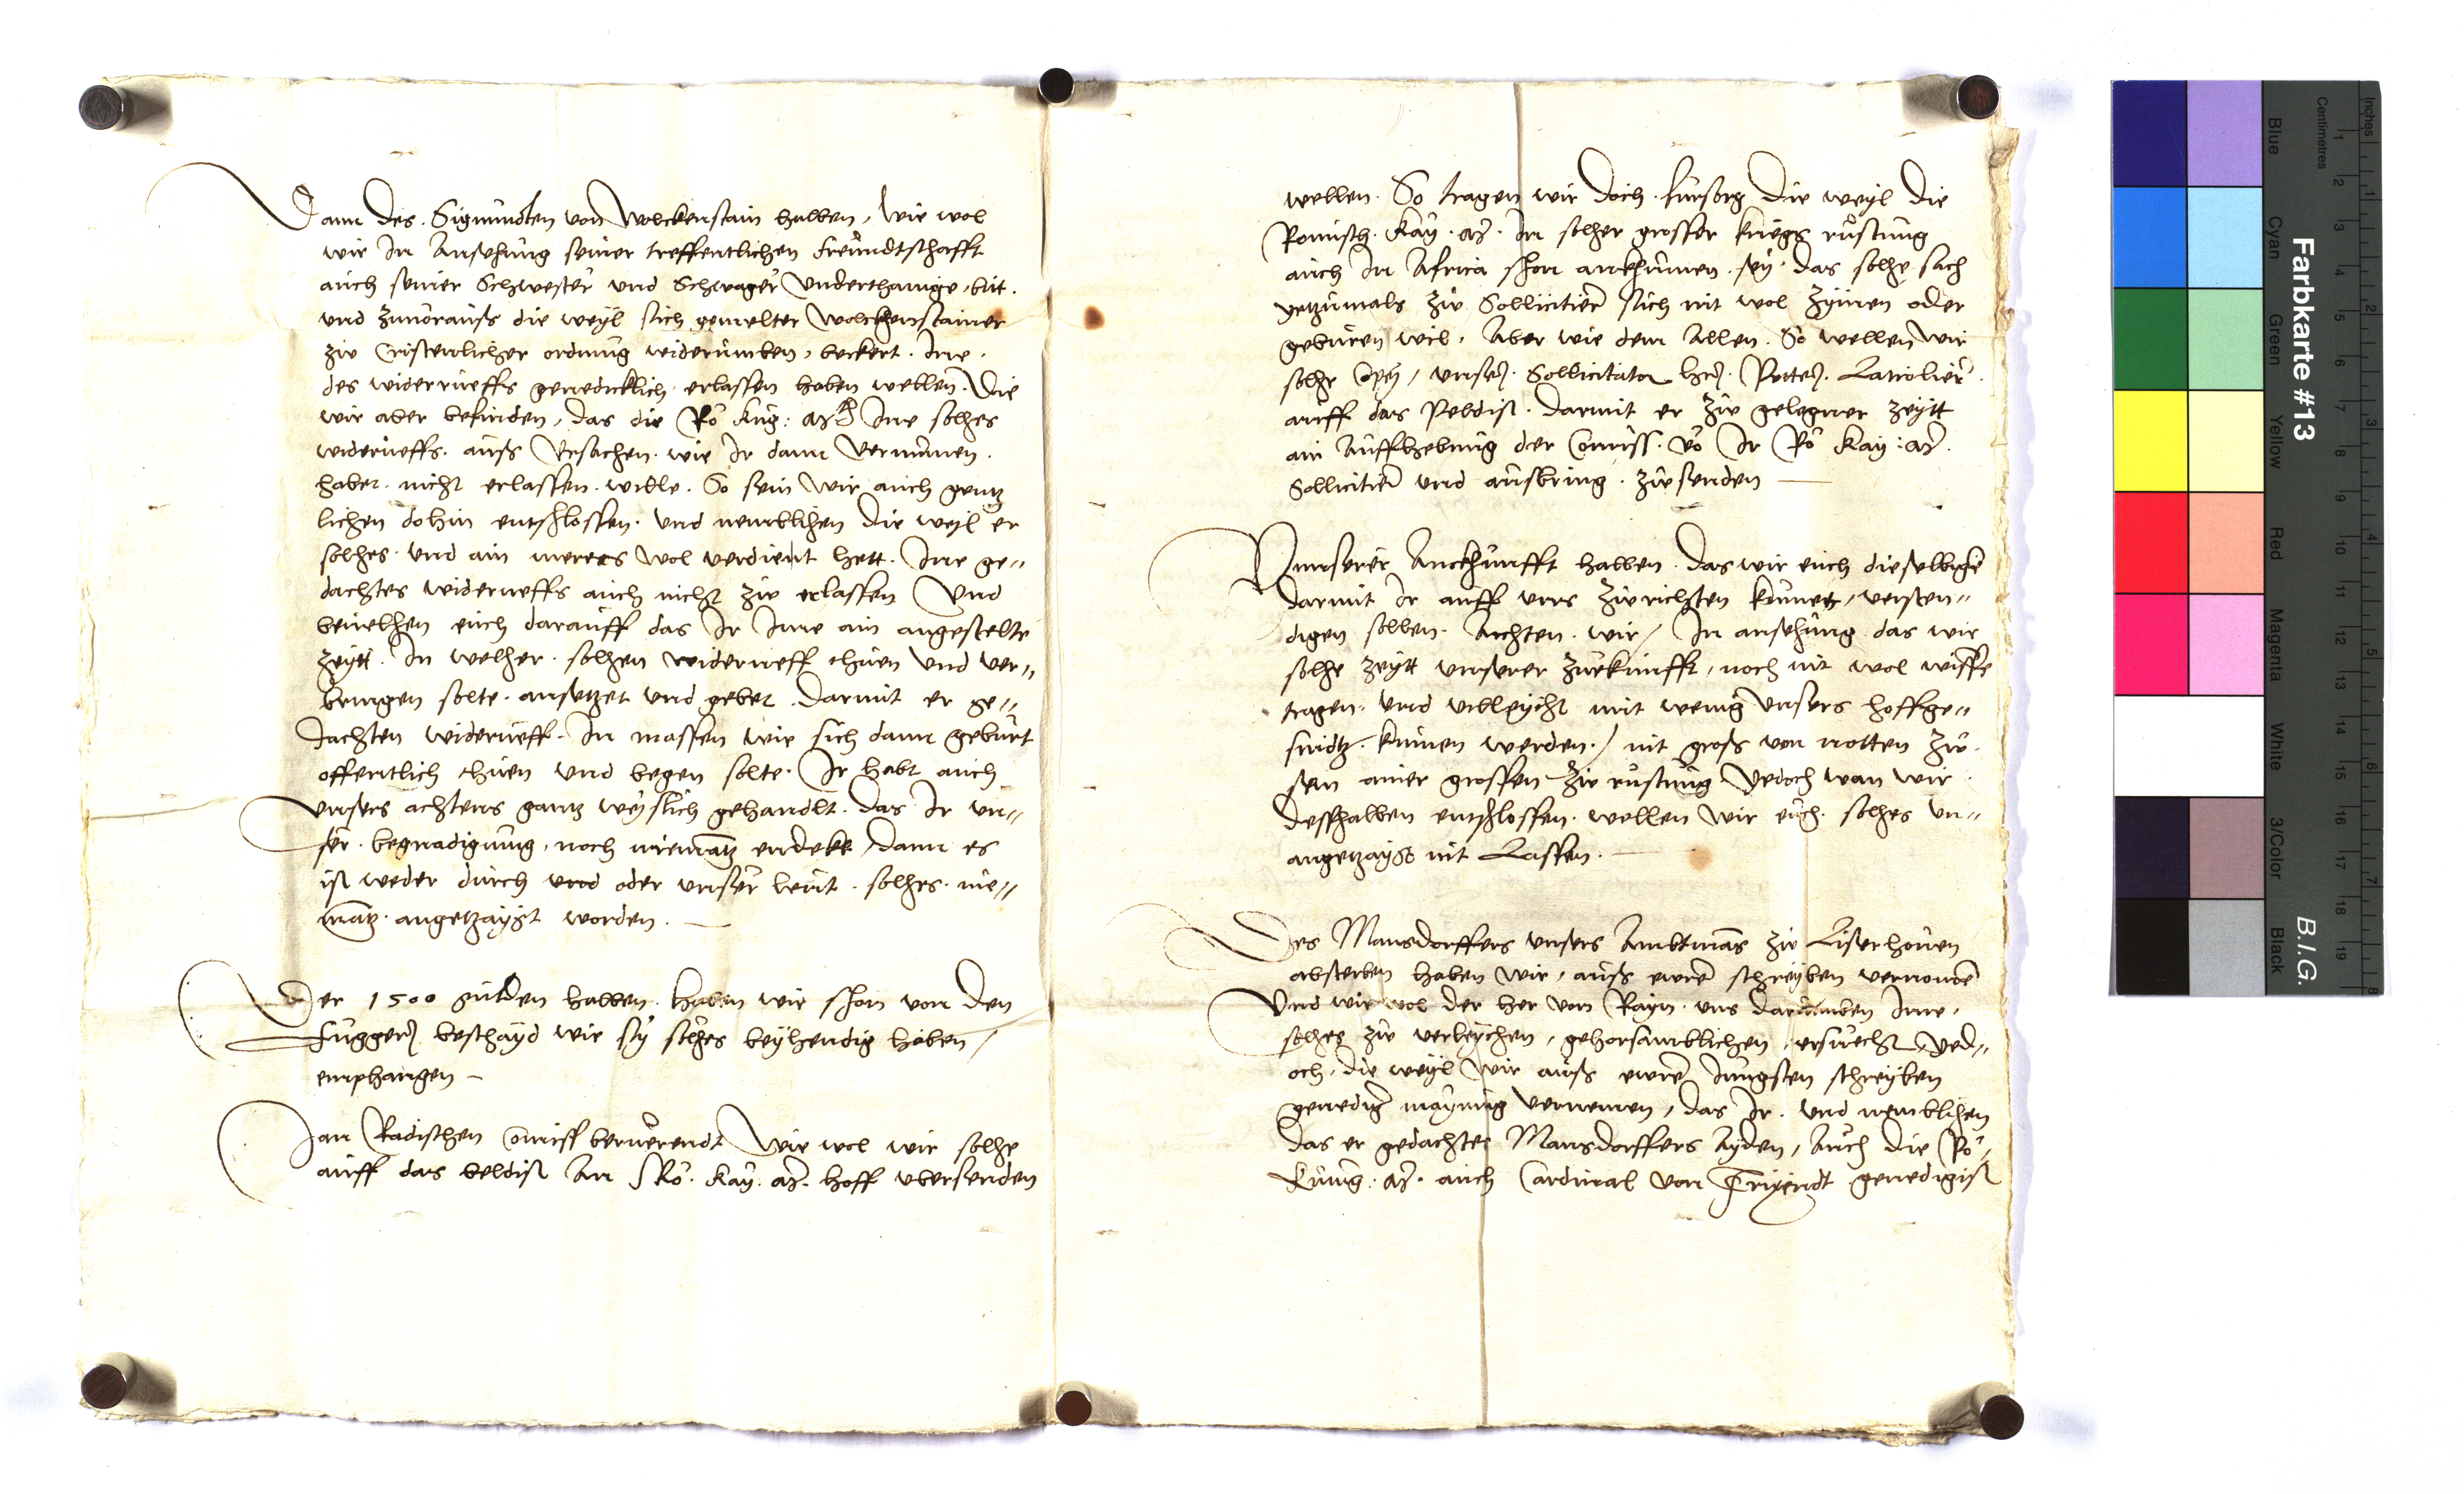 Dann des Sigmundten von Wolckenstain halben, wie wol
wir In Ansehung seiner treffentlichen freundtschafft
auch seiner Schwester und Schwager Underthanige, bit.
und zuvorauß die weyl sich gemelter Wolckhenstainer
zw Cristenlicher ordnung widerumben, bekert. Ine.
des widerrueffs genedicklich erlassen haben wellen. Die
wir aber befinden, das die Rö Kng: Mt Ine solhes
widerueffs. auß Ursachen. wie Ir dann vernumen.
habet. nicht erlassen. wölle. So sein wir auch gentz
lichen dohin entschlossen. und nemblihen die weyl er
solhes und ain mereres wol verdient hett. Ine ge=
dachtes widerueffs auch nicht zw erlassen Und
bevelhen euch darauff das Ir Ime ain angestelte
zeytt. In welher. solhen widerueff thuen und ver=
bringen solte. ansetzet und gebet. darmit er ge=
dachten widerueff. In massen wie sich dann geburt
offentlich thuen und begen solte. Ir habt auch
unsers achtens gantz weyslich gehandlt. das Ir un=
ser. begnadigung, noch niemantz endekt, dann es
ist weder durch und oder unser leut. solhes. nie=
mantz. angetzaygt worden.
Der 1500 gulden halben. haben wir schon von den
Fuggern beschayd wie sy solhes beyhendig haben /
emphangen
Jan Radischen Comiss beruerendt Wie wol wir solhe
auff das beldist An Rö. Kay. Mt. hoff ubersenden
wellen. So tragen wir doch. fursorg die weyl die
Romisch. Kay. Mt. In solher grosser kriegs rustung
auch In Africa schon ankhumen. sey. das solhe sach
yetzumals zw Sollicitiern sich nit wol zymen oder
geburen wil. Aber wie dem Allen. So wellen wir
solhe Copey / unsern. Sollicitator hern.
auff das Peldist. darmit er zw gelegner zeytt
ain Auffhebung der Comiss. vo Ir Rö Kay: Mt.
Sollicitiern und ausbring. zwsenden
Unnserer Anckhunfft halben. das wir euch dieselbige
darmit Ir auff uns zwrichten kunet, versten=
digen sollen. Achten. wir / In ansehung das wir
solhe zeytt unserer zuekunfft, noch nit wol wisse
tragen. und villeycht mit wenig unsers hoffge=
sindtz. kumen werden. / nit groß von notten zw.
sein ainer grossen zw rustung Yedoch wan wir
desshalben entschlossen. wellen wir euch. solhes un=
angetzaygt nit Lassen.
Des Mansdorffers unsers Ambtmans zw Liserhouen
absterben haben wir, auß ewre schreyben vernomen
Und wie wol der her von Rayn. uns darumben Ime.
solhes zw verleychen, gehorsamblichen, ersuecht, Yed=
och, die weyl wir auß ewre Jungsten schreyben
genediger maynung vernemen, das Ir. und nemblihen
das er gedachtes Mansdorffers Ayden, Auch die Rö.
Kunig: Mt. auch Cardinal von Triendt genedigist